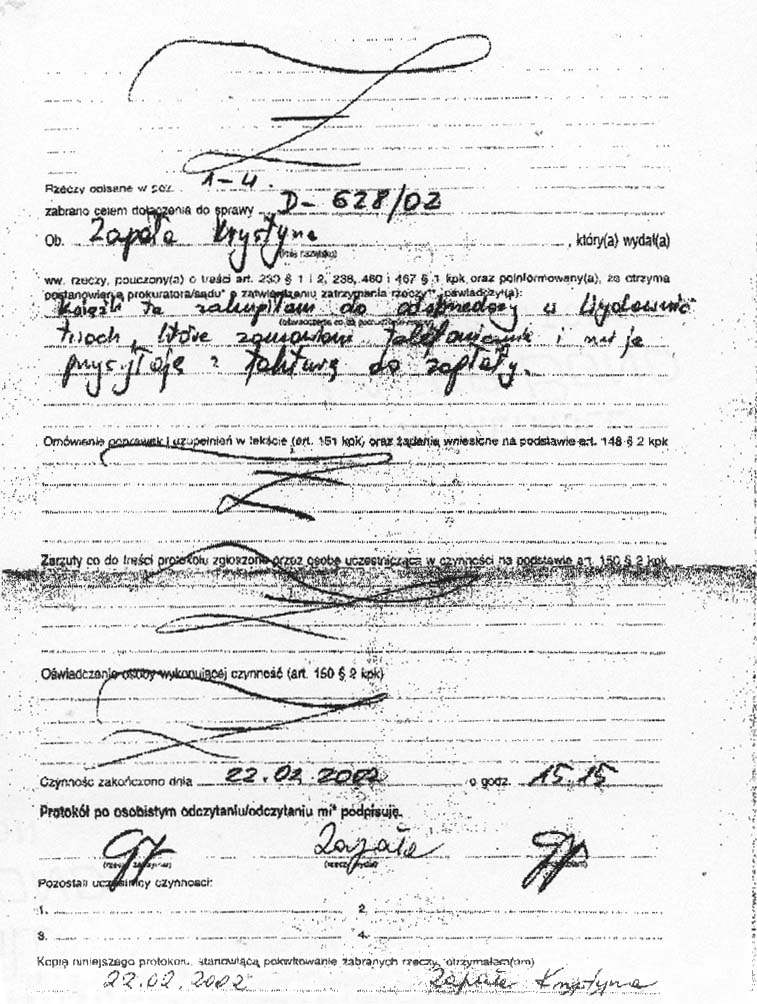 Rzeczy opisane w poz. 1-4.
zabrano celem dołączenia do sprawy D-628/02
Ob. Zapała Krystyna, który(a) wydał(a)
(imię i nazwisko)
ww. rzeczy, pouczony(a) o treści art. 230 § 1 i 2, 236, 460 i 467 § 1 kpk oraz poinformowany(a), że otrzyma
postanowienie prokuratora/sądu* o zatwierdzeniu zatrzymania rzeczy**, oświadczył(a):
Książki te zakupiłam do odsprzedaży w Wydawnic
twach, które zamawiam telefonicznie i mi je
przysyłają z fakturą do zapłaty.
Omówienie poprawek i uzupełnień w tekście (art. 151 kpk) oraz żądania wniesione na podstawie art. 148 § 2 kpk
Zarzuty co do treści protokołu zgłoszone przez osobę uczestniczącą w czynności na podstawie art. 150 § 2 kpk
Oświadczenie osoby wykonującej czynność (art. 150 § 2 kpk)
Czynność zakończono dnia 22.02.2002 o godz. 15.15
Protokół po osobistym odczytaniu/odczytaniu mi* podpisuję.
Zapała
Pozostali uczestnicy czynności:
1. 2.
3. 4.
Kopię niniejszego protokołu, stanowiącą pokwitowanie zabranych rzeczy, otrzymałem(am)
22.02.2002 Zapała Krystyna